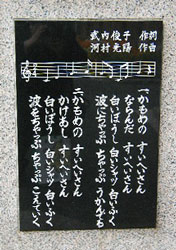 武内俊子 作詞
河村光陽 作曲
一、かもめの すいへいさん
ならんだ すいへいさん
白いぼうし 白いシャツ 白いふく
波にちゃっぷ ちゃっぷ うかんでる
二、かもめの すいへいさん
かけあし すいへいさん
白いぼうし 白いシャツ 白いふく
波をちゃっぷ ちゃっぷ こえていく